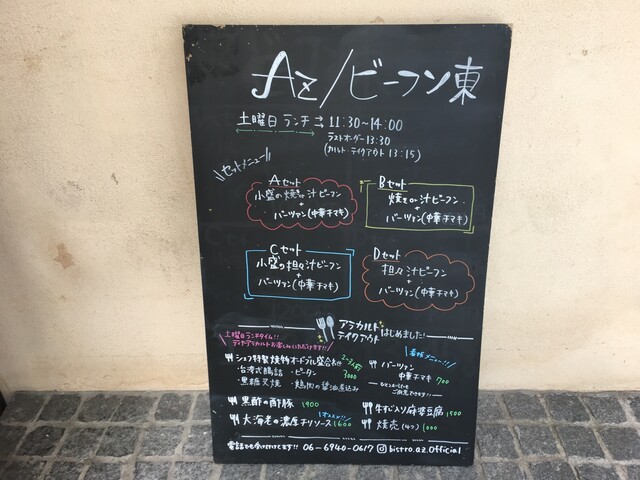 Az/ビーフン東
土曜日 ランチ ⇒ 11:30~14:00
ラストオーダー 13:30
(アラカルト・テイクアウト 13:15)
セットメニュー
Aセット
小盛の焼き or 汁ビーフン
+
バーツァン(中華チマキ)
Bセット
焼き or 汁ビーフン
+
バーツァン(中華チマキ)
Cセット
小盛の担々汁ビーフン
+
バーツァン(中華チマキ)
Dセット
担々汁ビーフン
+
バーツァン(中華チマキ)
アラカルト
テイクアウト はじめました!
土曜日ランチタイム!!
シェフ特製焼物オードブル盛合わせ 2~3人前
3000
・台湾式腸詰 ・ピータン
・黒糖叉焼 ・鶏肉の醤油煮込み
黒酢の酢豚 1900
大海老の濃厚チリソース 1600
看板メニュー!!
バーツァン
中華チマキ 700
牛すじ入り麻婆豆腐 1500
焼売(4ヶ) 1000
電話でも受け付けてます!! 06-6940-0617 bistro.az.official